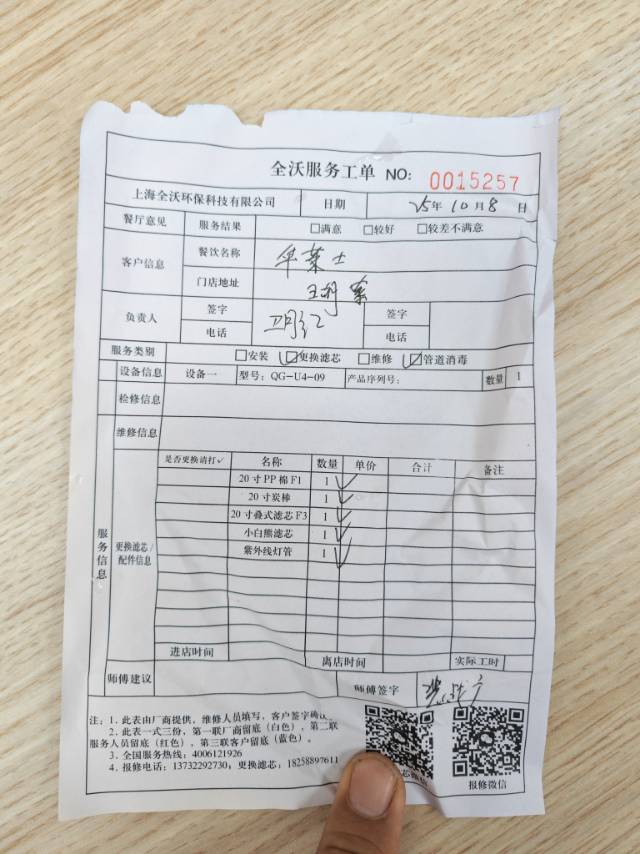 全沃服务工单 NO: 0015257
上海全沃环保科技有限公司 日期 25年10月8日
餐厅意见 服务结果 □满意 □较好 □较差不满意
客户信息 餐饮名称
门店地址
负责人 签字 签字
电话 电话
服务类别 □安装 ☑更换滤芯 □维修 ☑管道消毒
设备信息 设备一 型号: QG-U4-09 产品序列号: 数量 1
检修信息
维修信息
服务信息
更换滤芯/配件信息
是否更换请打✓ 名称 数量 单价 合计 备注
20寸PP棉F1 1 ✓
20寸炭棒 1 ✓
20寸叠式滤芯F3 1 ✓
小白熊滤芯 1 ✓
紫外线灯管 1 ✓
进店时间 离店时间 实际工时
师傅建议 师傅签字
注: 1. 此表由厂商提供, 维修人员填写, 客户签字确认。
2. 此表一式三份, 第一联厂商留底(白色), 第二联
服务人员留底(红色), 第三联客户留底(蓝色)。
3. 全国服务热线: 4006121926
4. 报修电话: 13732292730; 更换滤芯: 18258897611
报修微信